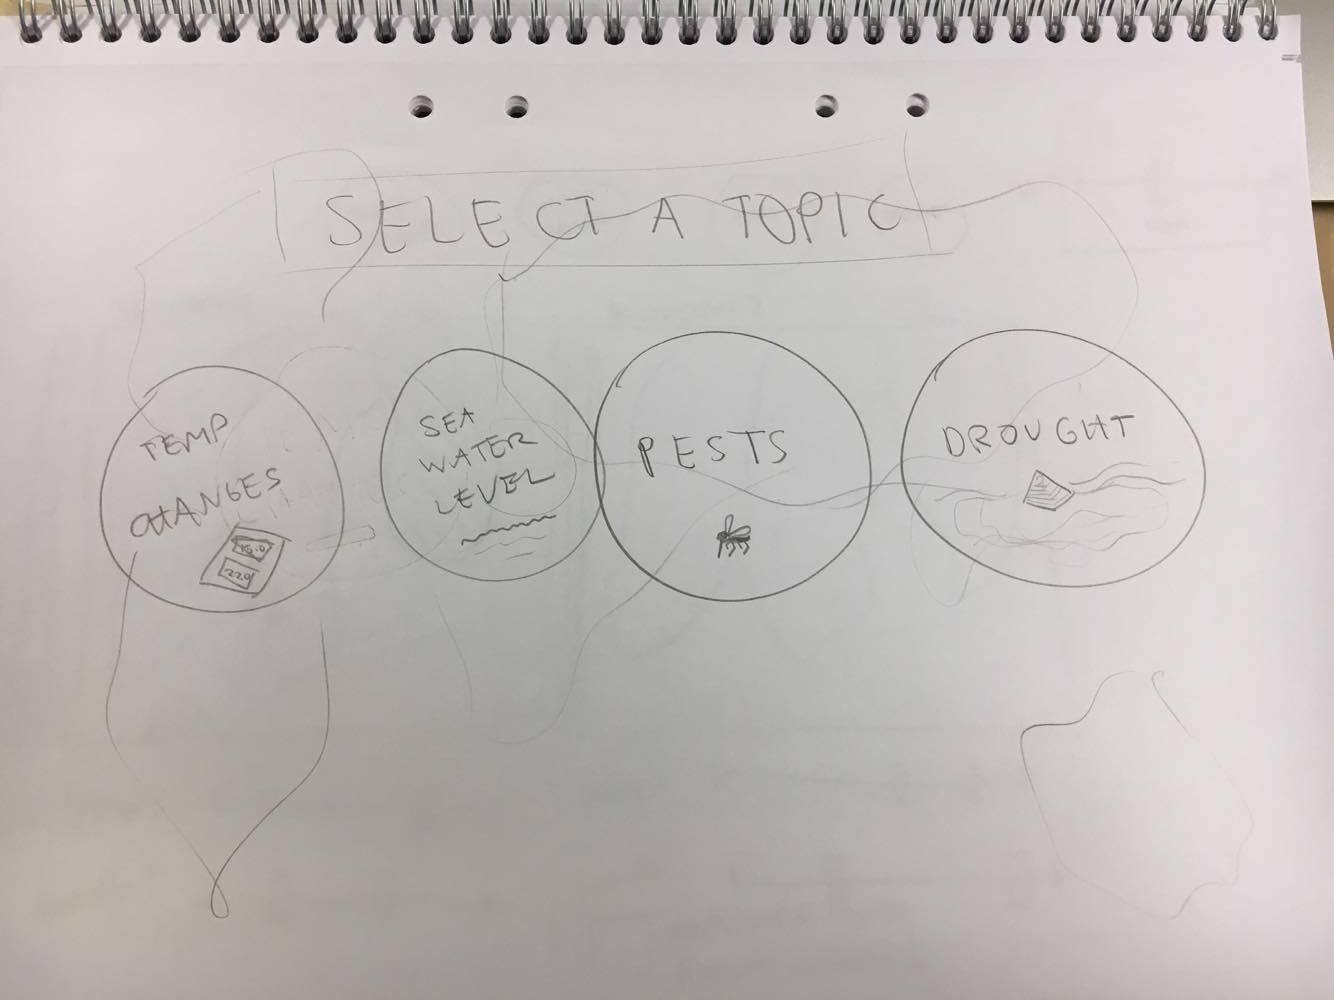 SELECT A TOPIC
TEMP
CHANGES
SEA
WATER
LEVEL
PESTS
DROUGHT